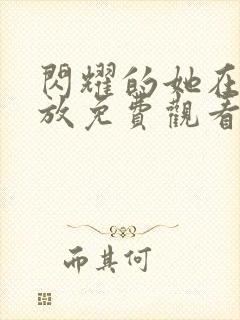 閃耀的她在
放免費觀看
而其何